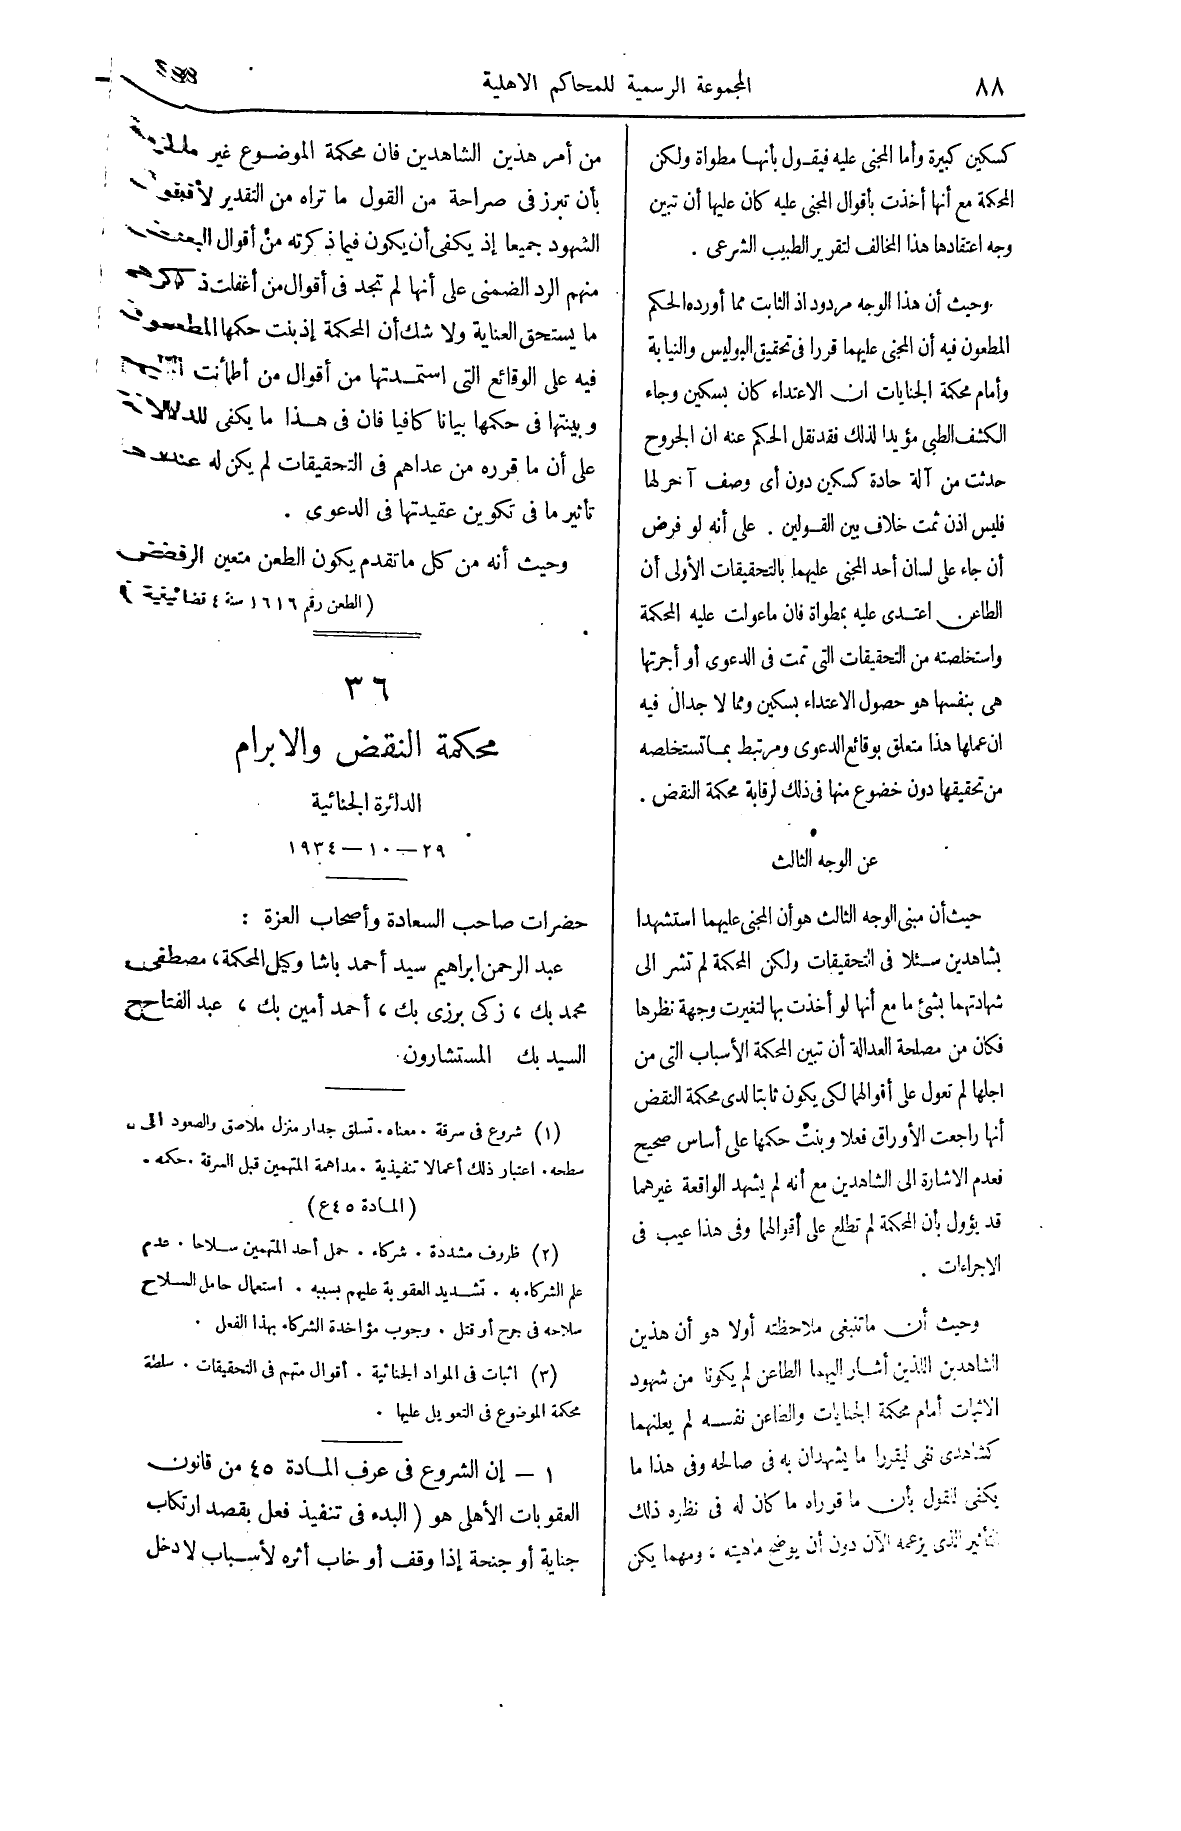 ٨٨
المجموعة الرسمية للمحاكم الاهلية
كسكين كبيرة وأما المجنى عليه فيقول بأنها مطواة ولكن
المحكمة مع أنها أخذت بأقوال المجنى عليه كان عليها أن تبين
وجه اعتقادها هذا المخالف لتقرير الطبيب الشرعى .
وحيث أن هذا الوجه مردود اذ الثابت مما أورده الحكم
المطعون فيه أن المجنى عليهما قررا فى تحقيق البوليس والنيابة
وأمام محكمة الجنايات ان الاعتداء كان بسكين وجاء
الكشف الطبى مؤيدا لذلك فقد نقل الحكم عنه ان الجروح
حدثت من آلة حادة كسكين دون أى وصف آخر لها
فليس اذن ثمت خلاف بين القولين . على أنه لو فرض
أن جاء على لسان أحد المجنى عليهما بالتحقيقات الأولى أن
الطاعن اعتدى عليه بمطواة فان ماعولت عليه المحكمة
واستخلصته من التحقيقات التى تمت فى الدعوى أو أجرتها
هى بنفسها هو حصول الاعتداء بسكين ومما لا جدال فيه
ان عملها هذا متعلق بوقائع الدعوى ومرتبط بما تستخلصه
من تحقيقها دون خضوع منها فى ذلك لرقابة محكمة النقض .
عن الوجه الثالث
حيث أن مبنى الوجه الثالث هو أن المجنى عليهما استشهدا
بشاهدين سئلا فى التحقيقات ولكن المحكمة لم تشر الى
شهادتهما بشئ ما مع أنها لو أخذت بها لتغيرت وجهة نظرها
فكان من مصلحة العدالة أن تبين المحكمة الأسباب التى من
اجلها لم تعول على أقوالهما لكى يكون ثابتا لدى محكمة النقض
أنها راجعت الأوراق فعلا وبنت حكمها على أساس صحيح
فعدم الاشارة الى الشاهدين مع أنه لم يشهد الواقعة غيرهما
قد يؤول بأن المحكمة لم تطلع على أقوالهما وفى هذا عيب فى
الاجراءات .
وحيث أن ماتنبغى ملاحظته أولا هو أن هذين
الشاهدين اللذين أشار اليهما الطاعن لم يكونا من شهود
الاثبات أمام محكمة الجنايات والطاعن نفسه لم يعلنهما
كشاهدى نفى ليقررا ما يشهدان به فى صالحه وفى هذا ما
يكفى للقول بأن ما قرراه ما كان له فى نظره ذلك
التأثير الذى يزعمه الآن دون أن يوضح ماهيته ؛ ومهما يكن
من أمر هذين الشاهدين فان محكمة الموضوع غير ملزمة
بأن تبرز فى صراحة من القول ما تراه من التقدير لأقوال
الشهود جميعا إذ يكفى أن يكون فيما ذكرته من أقوال البعض
منهم الرد الضمنى على أنها لم تجد فى أقوال من أغفلت ذكره
ما يستحق العناية ولا شك أن المحكمة إذ بنت حكمها المطعون
فيه على الوقائع التى استمدتها من أقوال من أطمأنت
وبينتها فى حكمها بيانا كافيا فان فى هذا ما يكفى للدلالة
على أن ما قرره من عداهم فى التحقيقات لم يكن له عندها
تأثير ما فى تكوين عقيدتها فى الدعوى .
وحيث أنه من كل ماتقدم يكون الطعن متعين الرفض
( الطعن رقم ١٦١٦ سنة ٤ قضائية )
٣٦
محكمة النقض والابرام
الدائرة الجنائية
٢٩ — ١٠ — ١٩٣٤
حضرات صاحب السعادة وأصحاب العزة :
عبد الرحمن ابراهيم سيد أحمد باشا وكيل المحكمة ، مصطفى
محمد بك ، زكى برزى بك ، أحمد أمين بك ، عبد الفتاح
السيد بك المستشارون
(١) شروع فى سرقة . معناه . تسلق جدار منزل ملاصق والصعود الى
سطحه . اعتبار ذلك أعمالا تنفيذية . مداهمة المتهمين قبل السرقة . حكمه .
(المادة ٤٥ ع)
(٢) ظروف مشددة . شركاء . حمل أحد المتهمين سلاحا . عدم
علم الشركاء به . تشديد العقوبة عليهم بسببه . استعمال حامل السلاح
سلاحه فى جرح أو قتل . وجوب مؤاخدة الشركاء بهذا الفعل .
(٣) اثبات فى المواد الجنائية . أقوال متهم فى التحقيقات . سلطة
محكمة الموضوع فى التعويل عليها .
١ — إن الشروع فى عرف المادة ٤٥ من قانون
العقوبات الأهلى هو ( البدء فى تنفيذ فعل بقصد ارتكاب
جناية أو جنحة إذا وقف أو خاب أثره لأسباب لا دخل